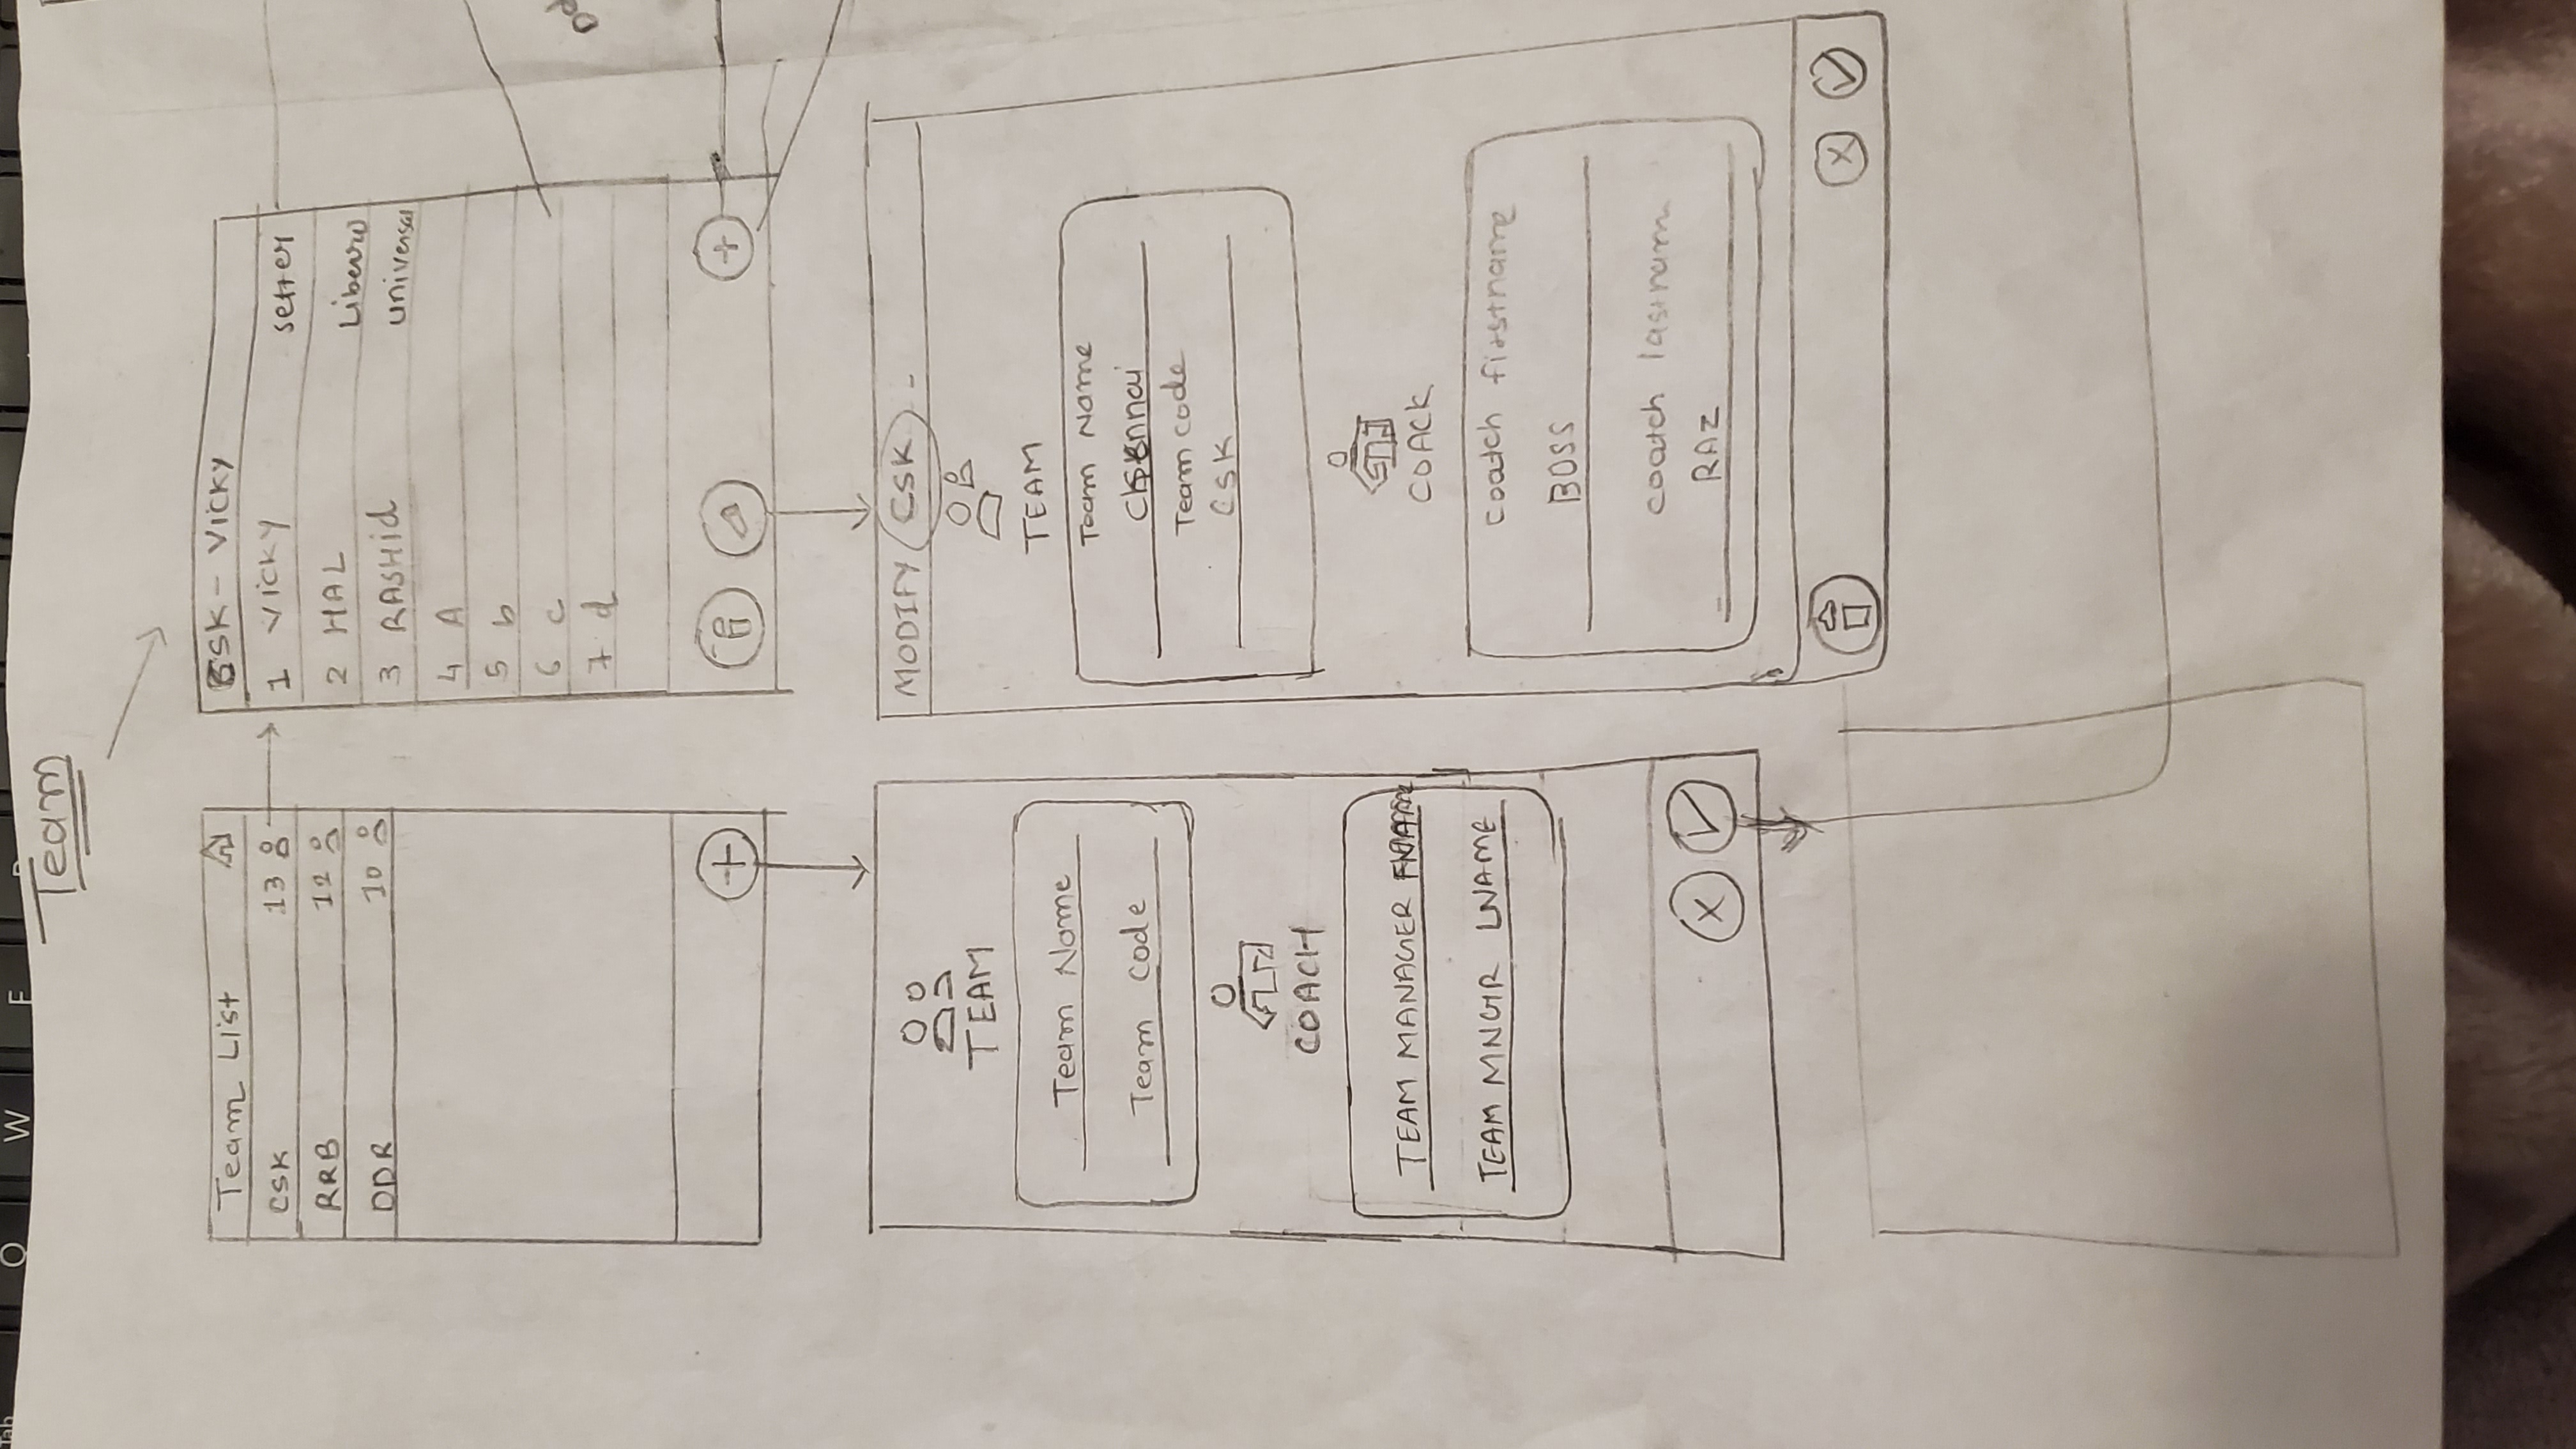 Tab
Q W E
Team
Team List
CSK 13
RRB 12
DDR 10
CSK - Vicky
1 Vicky setter
2 HAL Liberro
3 RASHid universal
4 A
5 b
6 c
7 d
TEAM
Team Name
Team code
COACH
TEAM MANAGER FNAME
TEAM MNGR LNAME
MODIFY CSK -
TEAM
Team Name
Chennai
Team code
CSK
COACK
coatch firstname
BOSS
coatch lastnam
RAZ